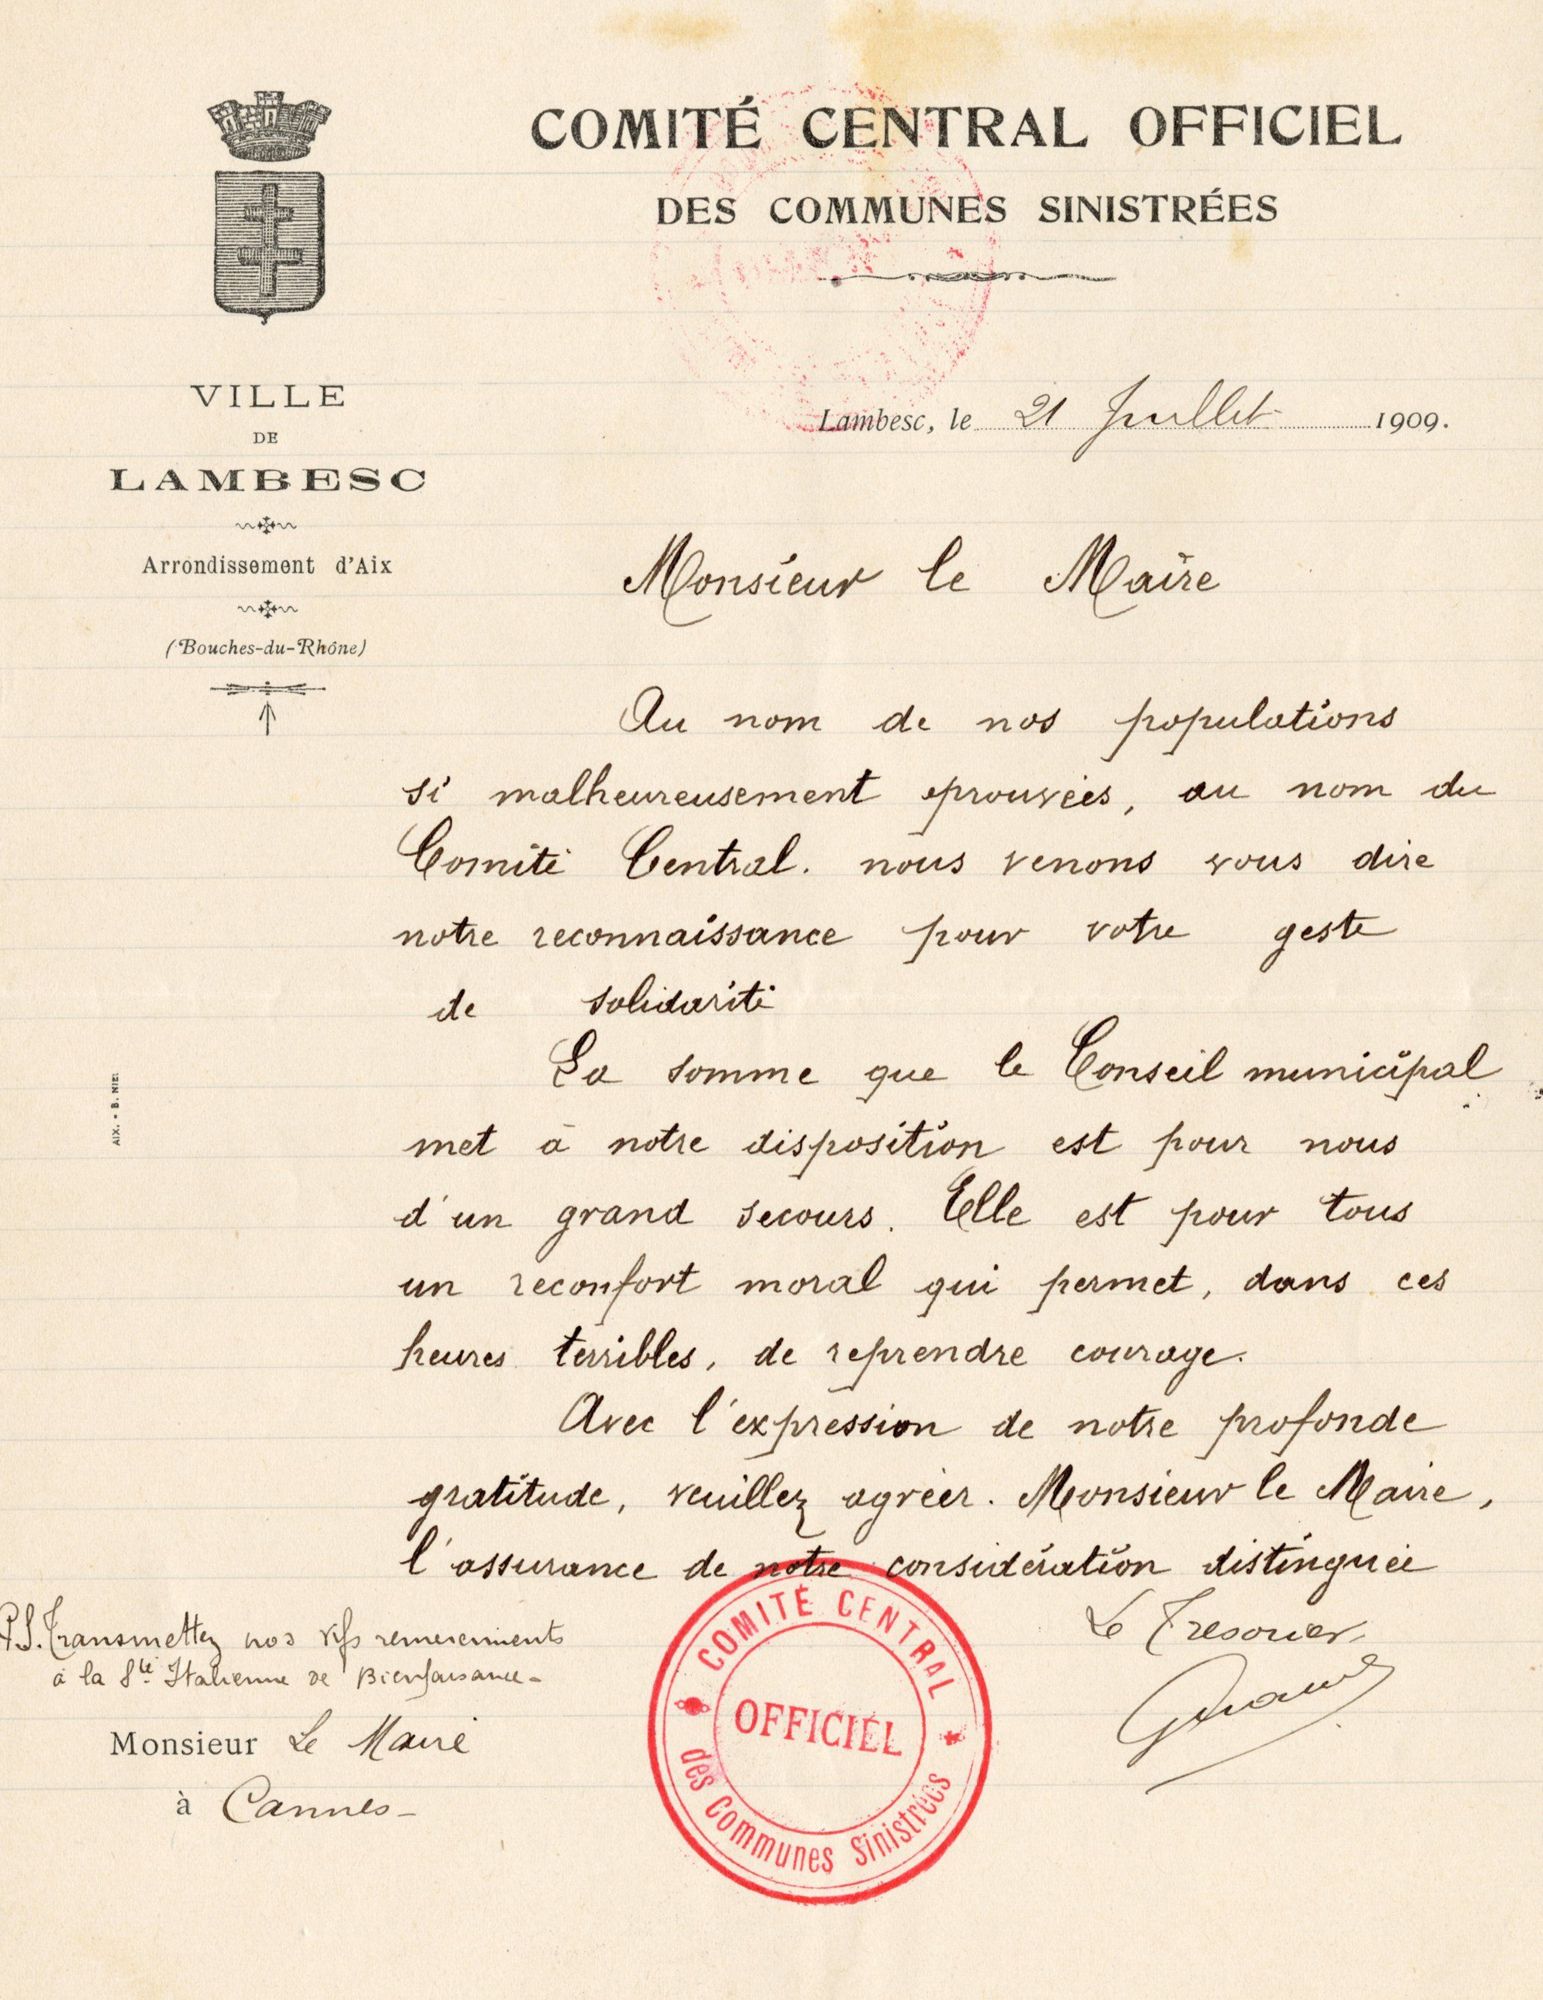 COMITÉ CENTRAL OFFICIEL
DES COMMUNES SINISTRÉES
VILLE
DE
LAMBESC
Arrondissement d'Aix
(Bouches-du-Rhône)
Lambesc, le 21 Juillet 1909.
Monsieur le Maire
Au nom de nos populations
si malheureusement eprouvées, au nom du
Comité Central. nous venons vous dire
notre reconnaissance pour votre geste
de solidarité
La somme que le Conseil municipal
met à notre disposition est pour nous
d'un grand secours. Elle est pour tous
un reconfort moral qui permet, dans ces
heures terribles, de reprendre courage.
Avec l'expression de notre profonde
gratitude, veuillez agréer. Monsieur le Maire,
l'assurance de notre considération distinguée
Le Tresorier
P.S. Transmettez nos vifs remerciements
à la Sté Italienne de Bienfaisance-
Monsieur Le Maire
à Cannes-
COMITÉ CENTRAL
OFFICIEL
des Communes Sinistrées
AIX. - B. NIE